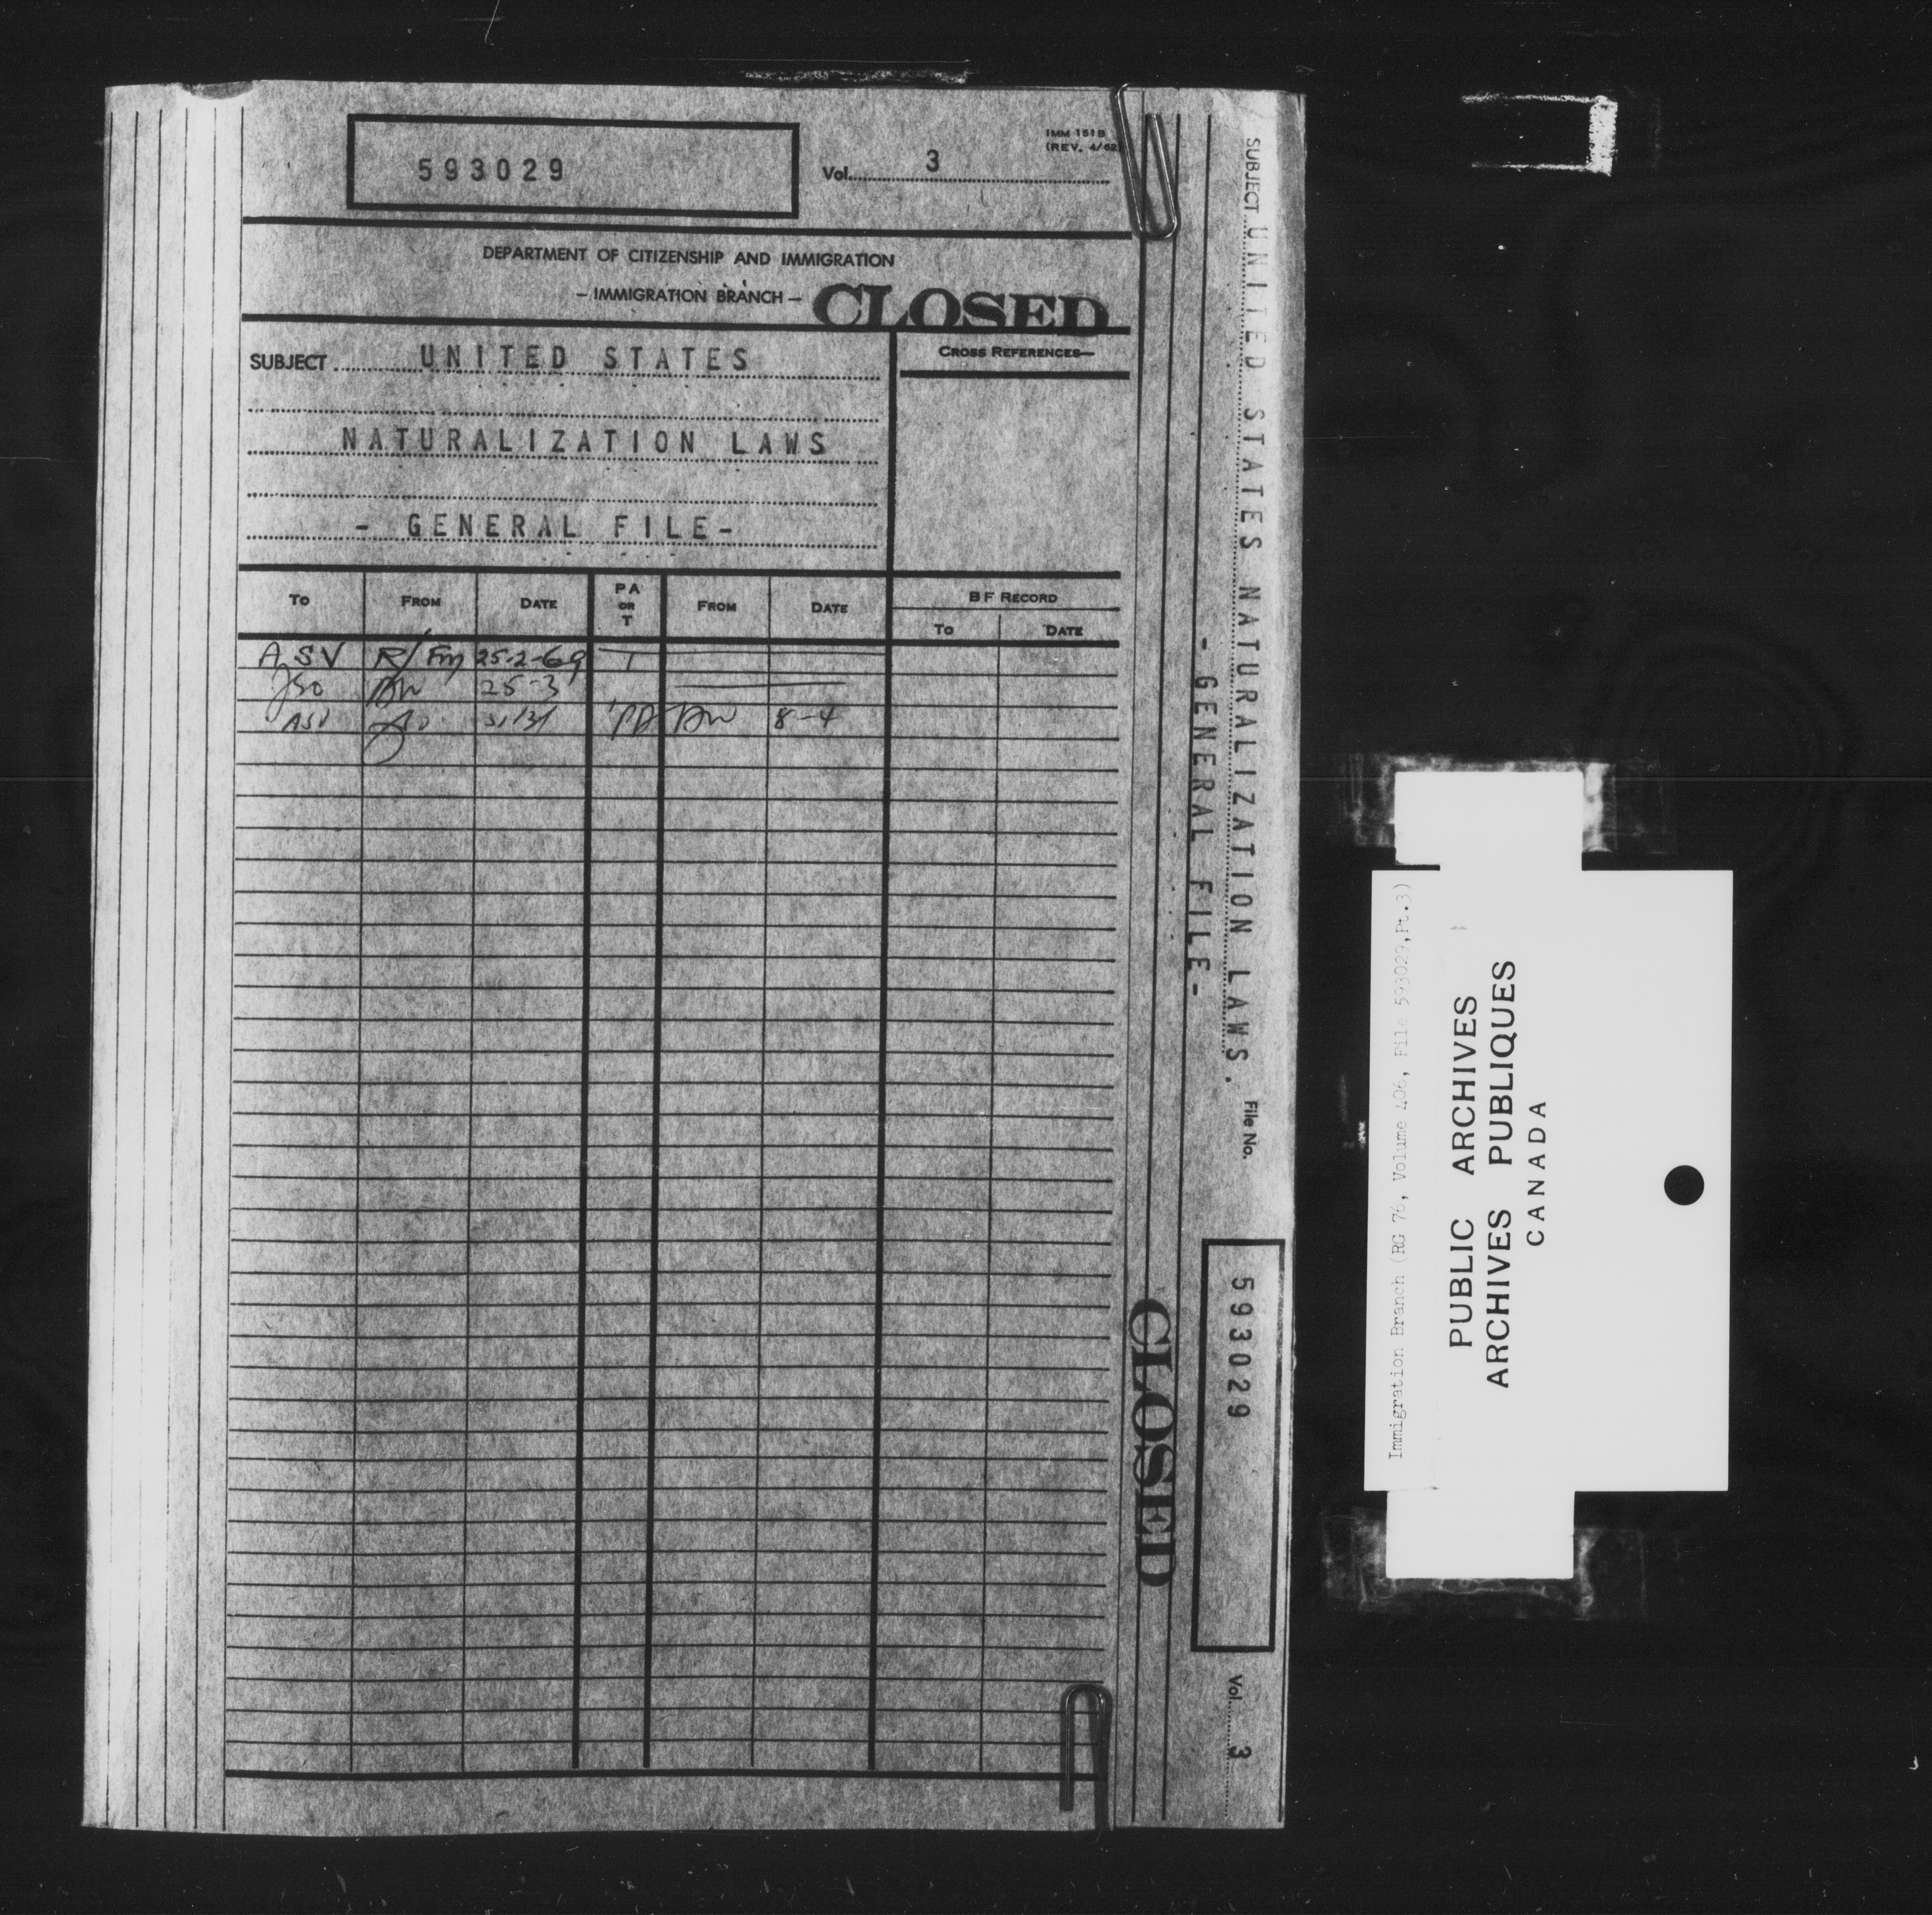 593029
Vol. 3
IMM 151B
(REV. 4/62)
DEPARTMENT OF CITIZENSHIP AND IMMIGRATION
– IMMIGRATION BRANCH –
CLOSED
SUBJECT UNITED STATES
NATURALIZATION LAWS
- GENERAL FILE-
CROSS REFERENCES—
TO FROM DATE PA OR T FROM DATE
BF RECORD
TO DATE
ASV R/ 25-2-69 T
25-3
ASV PA 8-4
SUBJECT UNITED STATES NATURALIZATION LAWS.
- GENERAL FILE-
File No.
593029
CLOSED
Vol. 3
Immigration Branch (RG 76, Volume 406, File 593029,Pt.3)
PUBLIC ARCHIVES
ARCHIVES PUBLIQUES
CANADA